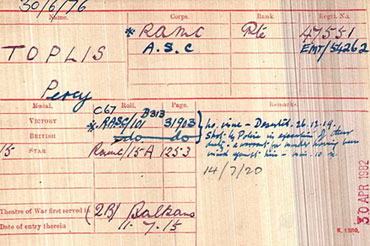 30/6/76
Name. Corps. Rank. Regtl. No.
TOPLIS * RAMC Pte 47551
A.S.C EMT/54262
Percy
Medal. Roll. Page. Remarks.
C67 B313
VICTORY * RASC/101 31903
BRITISH do do
/5 STAR RAMC/15A 1253
26.12.19.
Shot by Police in execution of their
duty - a warrant for murder having been
14/7/20
Theatre of War first served in (2B) Balkans
Date of entry therein 11.7.15
30 APR 1982
K. 1380.